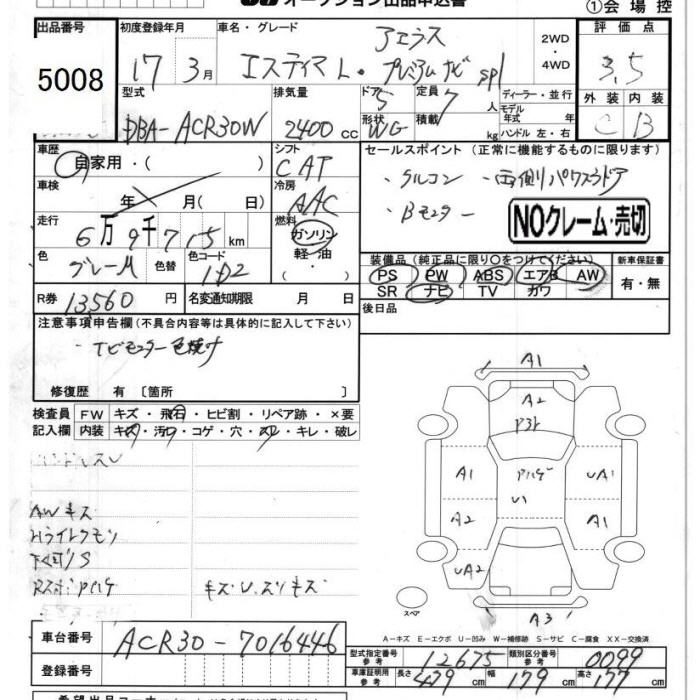 オークション出品申込書
①会場控
出品番号 初度登録年月 車名・グレード 評価点
5008
17 3月
アエラス
エスティマ L・プレミアムナビ spl
2WD
・
4WD
3.5
外装 内装
C B
型式 排気量 ドア 定員 ディーラー・並行
DBA-ACR30W 2400 cc 5 7 人
モデル年式 年式
形状 WG 積載 kg ハンドル 左・右
車歴 シフト セールスポイント (正常に機能するものに限ります)
自家用・( ) CAT
車検 冷房
年 月(日) AAC
・両側パワスラドア
・Bモニター
NOクレーム・売切
走行 燃料
6万9千715km ガソリン
軽油
・( )
色 色替 色コード
グレーM 1D2
装備品(純正品に限り○をつけてください) 新車保証書
PS PW ABS エアB AW 有・無
SR ナビ TV カワ
R券 13560 円 名変通知期限 月 日
後日品
注意事項申告欄(不具合内容等は具体的に記入して下さい)
・TVモニター色焼け
修復歴 有〔箇所 〕
検査員 FW キズ・飛石・ヒビ割・リペア跡・×要
記入欄 内装 キズ・汚れ・コゲ・穴・スレ・キレ・破レ
AWキズ
キズU.スリキズ
A1
A2
A1 UA1
U1
A2 A1
UA2
スペア
A3
A-キズ E-エクボ U-凹み W-補修跡 S-サビ C-腐食 XX-交換済
車台番号 ACR30-7016446
登録番号
型式指定番号 参考 12675 類別区分番号 参考 0099
車庫証明用 参考 長さ 479 cm 幅 179 cm 高さ 177 cm